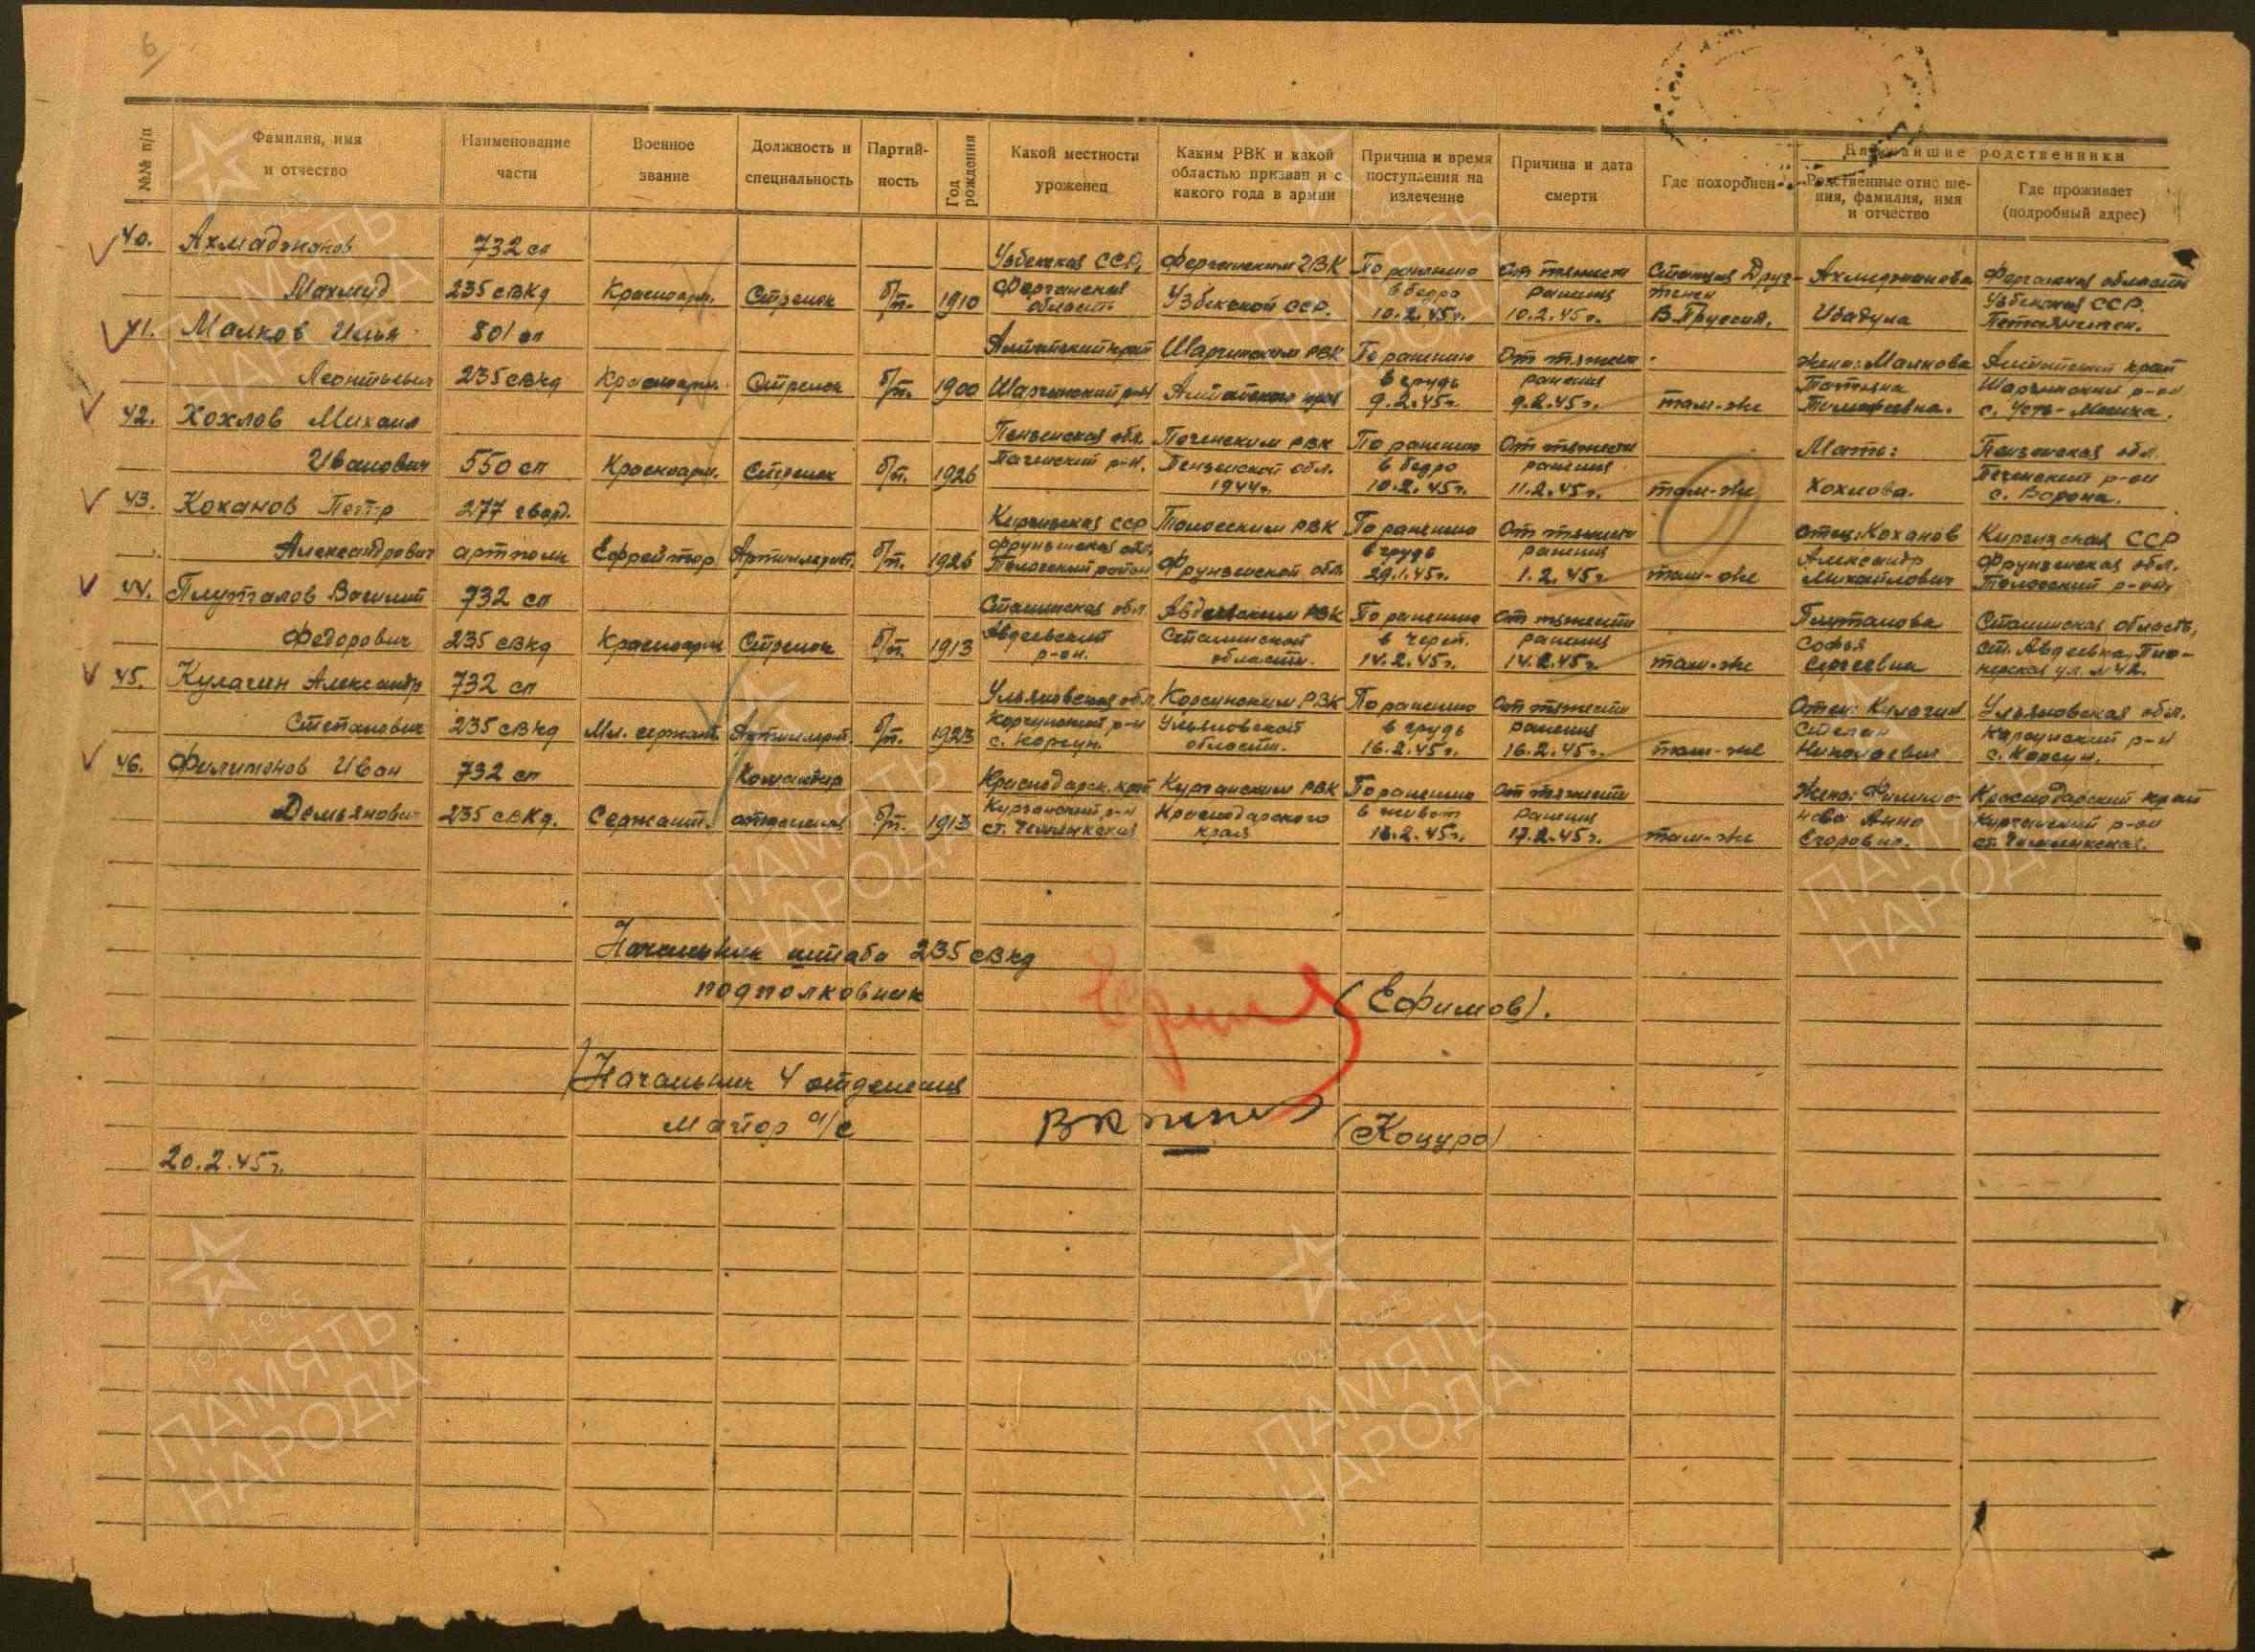 6
№№ п/п
Фамилия, имя
и отчество
Наименование
части
Военное
звание
Должность и
специальность
Партий-
ность
Год
рождения
Какой местности
уроженец
Каким РВК и какой
областью призван и с
какого года в армии
Причина и время
поступления на
излечение
Причина и дата
смерти
Где похоронен
Ближайшие родственники
Родственные отноше-
ния, фамилия, имя
и отчество
Где проживает
(подробный адрес)
40. Ахмаджонов 732 сп Узбекская ССР, Ферганским ГВК По ранению От тяжести Станция Друг- Ахмаджанова Ферганская область
Махмуд 235 свкд Красноарм. Стрелок б/п. 1910 Ферганская область Узбекской ССР. в бедро 10.2.45г. ранения 10.2.45г. тенен В.Пруссия. Ибадула Узбекская ССР.
41. Малков Илья 801 сп Алтайский край Шарчинским РВК По ранению От тяжести Жена: Малкова Алтайский край
Леонтьевич 235 свкд Красноарм. Стрелок б/п. 1900 Шарчинский р-н Алтайского края в грудь 9.2.45г. ранения 9.2.45г. там-же Татьяна Тимофеевна. Шарчинский р-он с. Усть-Мосиха.
42. Хохлов Михаил Пензенская обл. Паченским РВК По ранению От тяжести Мать: Пензенская обл.
Иванович 550 сп Красноарм. Стрелок б/п. 1926 Паченский р-н. Пензенской обл. 1944г. в бедро 10.2.45г. ранения 11.2.45г. там-же Хохлова. Паченский р-он с. Ворона.
43. Коханов Петр 277 гвард. Киргизская ССР Таласским РВК По ранению От тяжести отец: Коханов Киргизская ССР
Александрович арт полк Ефрейтор Артиллерист. б/п. 1926 Фрунзенская обл. район Фрунзенской обл. в грудь 29.1.45г. ранения 1.2.45г. там-же Александр Михайлович Фрунзенская обл. р-он.
44. Плуталов Василий 732 сп Сталинская обл. Авдеевским РВК По ранению От тяжести Плуталова Сталинская область,
Федорович 235 свкд Красноарм Стрелок б/п. 1913 Авдеевский р-он. Сталинской области. в череп. 14.2.45г. ранения 14.2.45г. там-же Софья Сергеевна ст. Авдеевка, Пио-
нерская ул. №42.
45. Кулагин Александр 732 сп Ульяновская обл. Карсунским РВК По ранению От тяжести Отец: Кулагин Ульяновская обл.
Степанович 235 свкд Мл. сержант. Артиллерист. б/п. 1923 Карсунский р-н с. Карсун. Ульяновской области. в грудь 16.2.45г. ранения 16.2.45г. там-же Степан Николаевич Карсунский р-н с. Карсун.
46. Филимонов Иван 732 сп Командир Краснодарск. край Курганским РВК По ранению От тяжести Жена: Филимо- Краснодарский край
Демьянович 235 свкд. Сержант. отделения б/п. 1913 Курганский р-н ст. Чамлыкская Краснодарского края в живот 16.2.45г. ранения 17.2.45г. там-же нова Анна Егоровна. Курганский р-он ст. Чамлыкская.
Начальник штаба 235 свкд
подполковник (Ефимов).
Начальник 4 отделения
майор а/с (Коцуро)
20.2.45г.
1941-1945
ПАМЯТЬ
НАРОДА